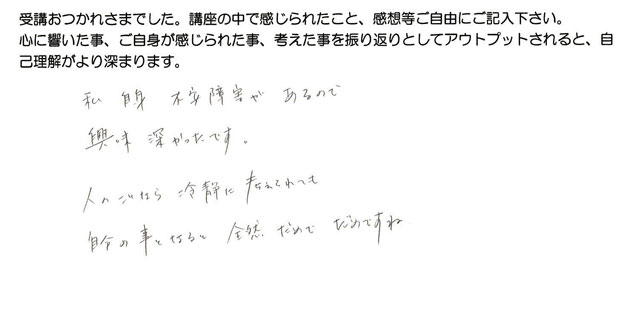 受講おつかれさまでした。講座の中で感じられたこと、感想等ご自由にご記入下さい。
心に響いた事、ご自身が感じられた事、考えた事を振り返りとしてアウトプットされると、自
己理解がより深まります。
私自身 不安障害が あるので
興味 深かったです。
人のことなら 冷静に 考えられても
自分の事となると 全然 だめで だめですね